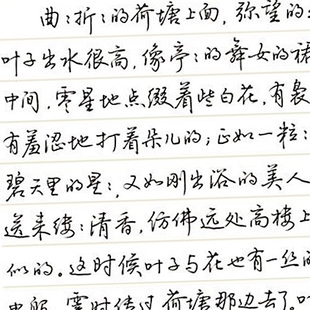 曲:折:的荷塘上面,弥望的
叶子出水很高,像亭:的舞女的裙
中间,零星地点缀着些白花,有袅
有羞涩地打着朵儿的;正如一粒:
碧天里的星:,又如刚出浴的美人
送来缕:清香,仿佛远处高楼上
似的。这时候叶子与花也有一丝
霎时传过荷塘那边去了。叶